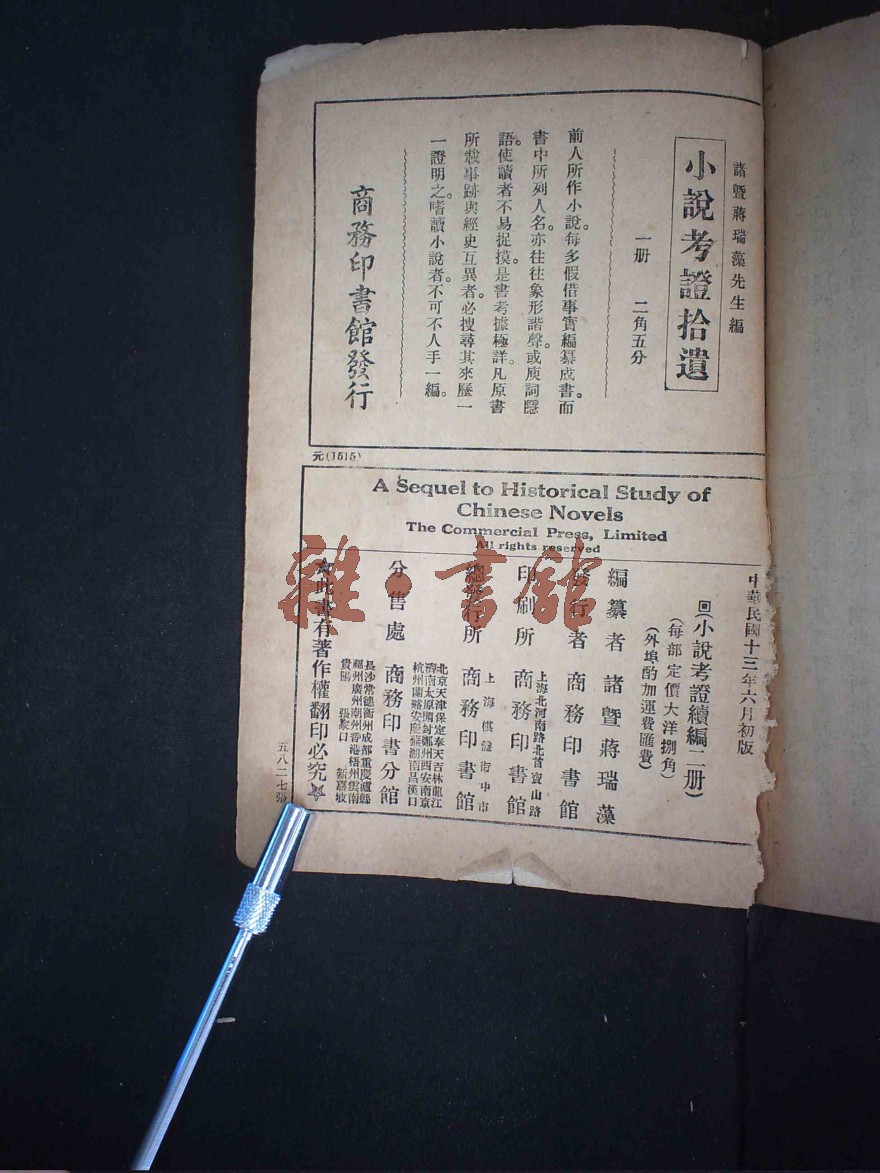 諸暨蔣瑞藻先生編
小說考證拾遺
一册 二角五分
前人所作小說。每多假借事實編纂成書。而
書中所列人名。亦往往象形諧聲。或庾詞隱
語。使讀者不易捉摸。是書考據極詳。凡原書
所載事跡與經史互異者。必搜尋其來歷一
一證明之。嗜讀小說者。不可不人手一編。
商務印書館發行
元(1515)
A Sequel to Historical Study of
Chinese Novels
The Commercial Press, Limited
All rights reserved
中華民國十三年六月初版
回(小說考證續編二册)
(每部定價大洋捌角)
(外埠酌加運費匯費)
編纂者 諸暨蔣瑞藻
發行者 商務印書館
印刷所 上海北河南路北首寶山路 商務印書館
總發行所 上海棋盤街中市 商務印書館
分售處 商務印書分館
北京天津保定奉天吉林龍江
濟南太原開封鄭州西安南京
杭州蘭谿安慶蕪湖南昌漢口
長沙常德衡州成都重慶瀘縣
福州廣州潮州香港梧州雲南
貴陽 張家口 新嘉坡
★此書有著作權翻印必究★
五八二七張
雜·書館